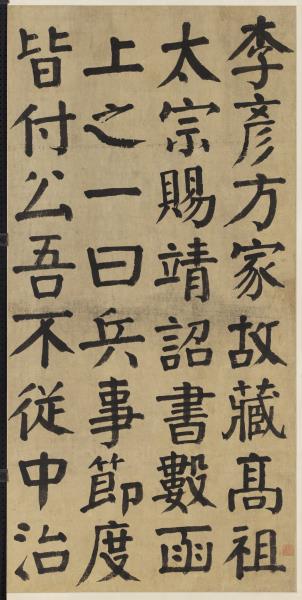 李彥方家故藏高祖
太宗賜靖詔書數函
上之一曰兵事節度
皆付公吾不從中治